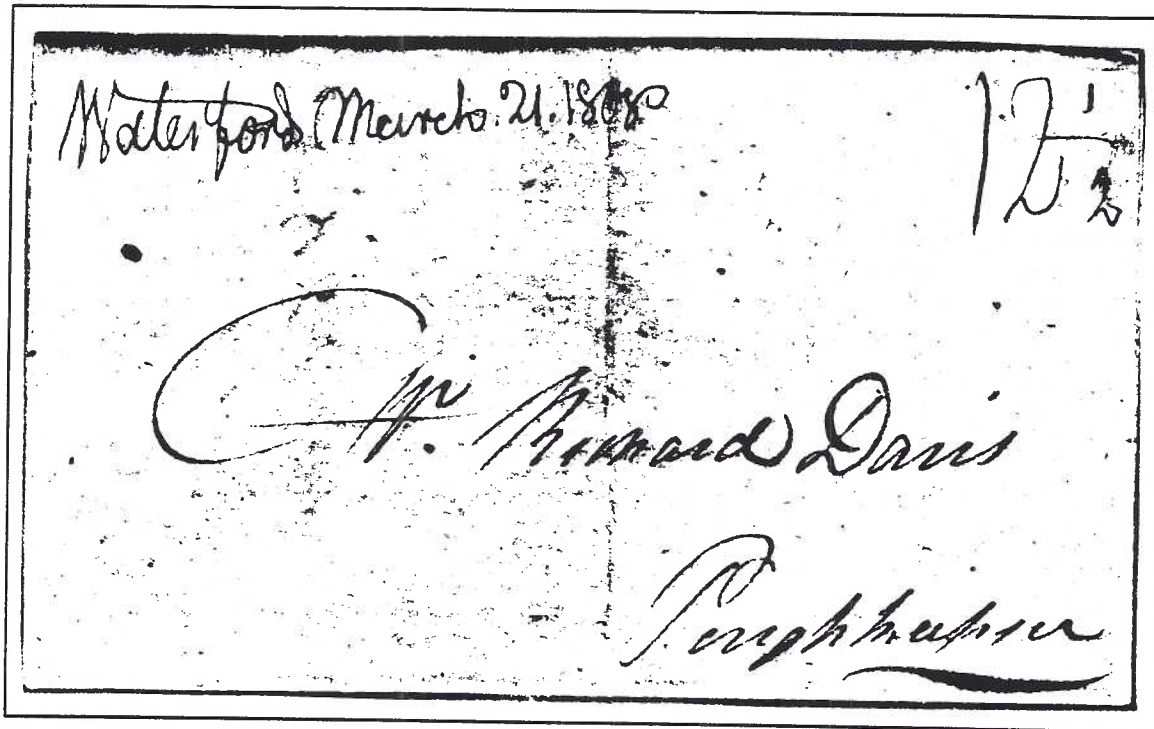 Waterford March. 21. 1808
12 1/2
Mr. Richard Davis
Poughkeepsie